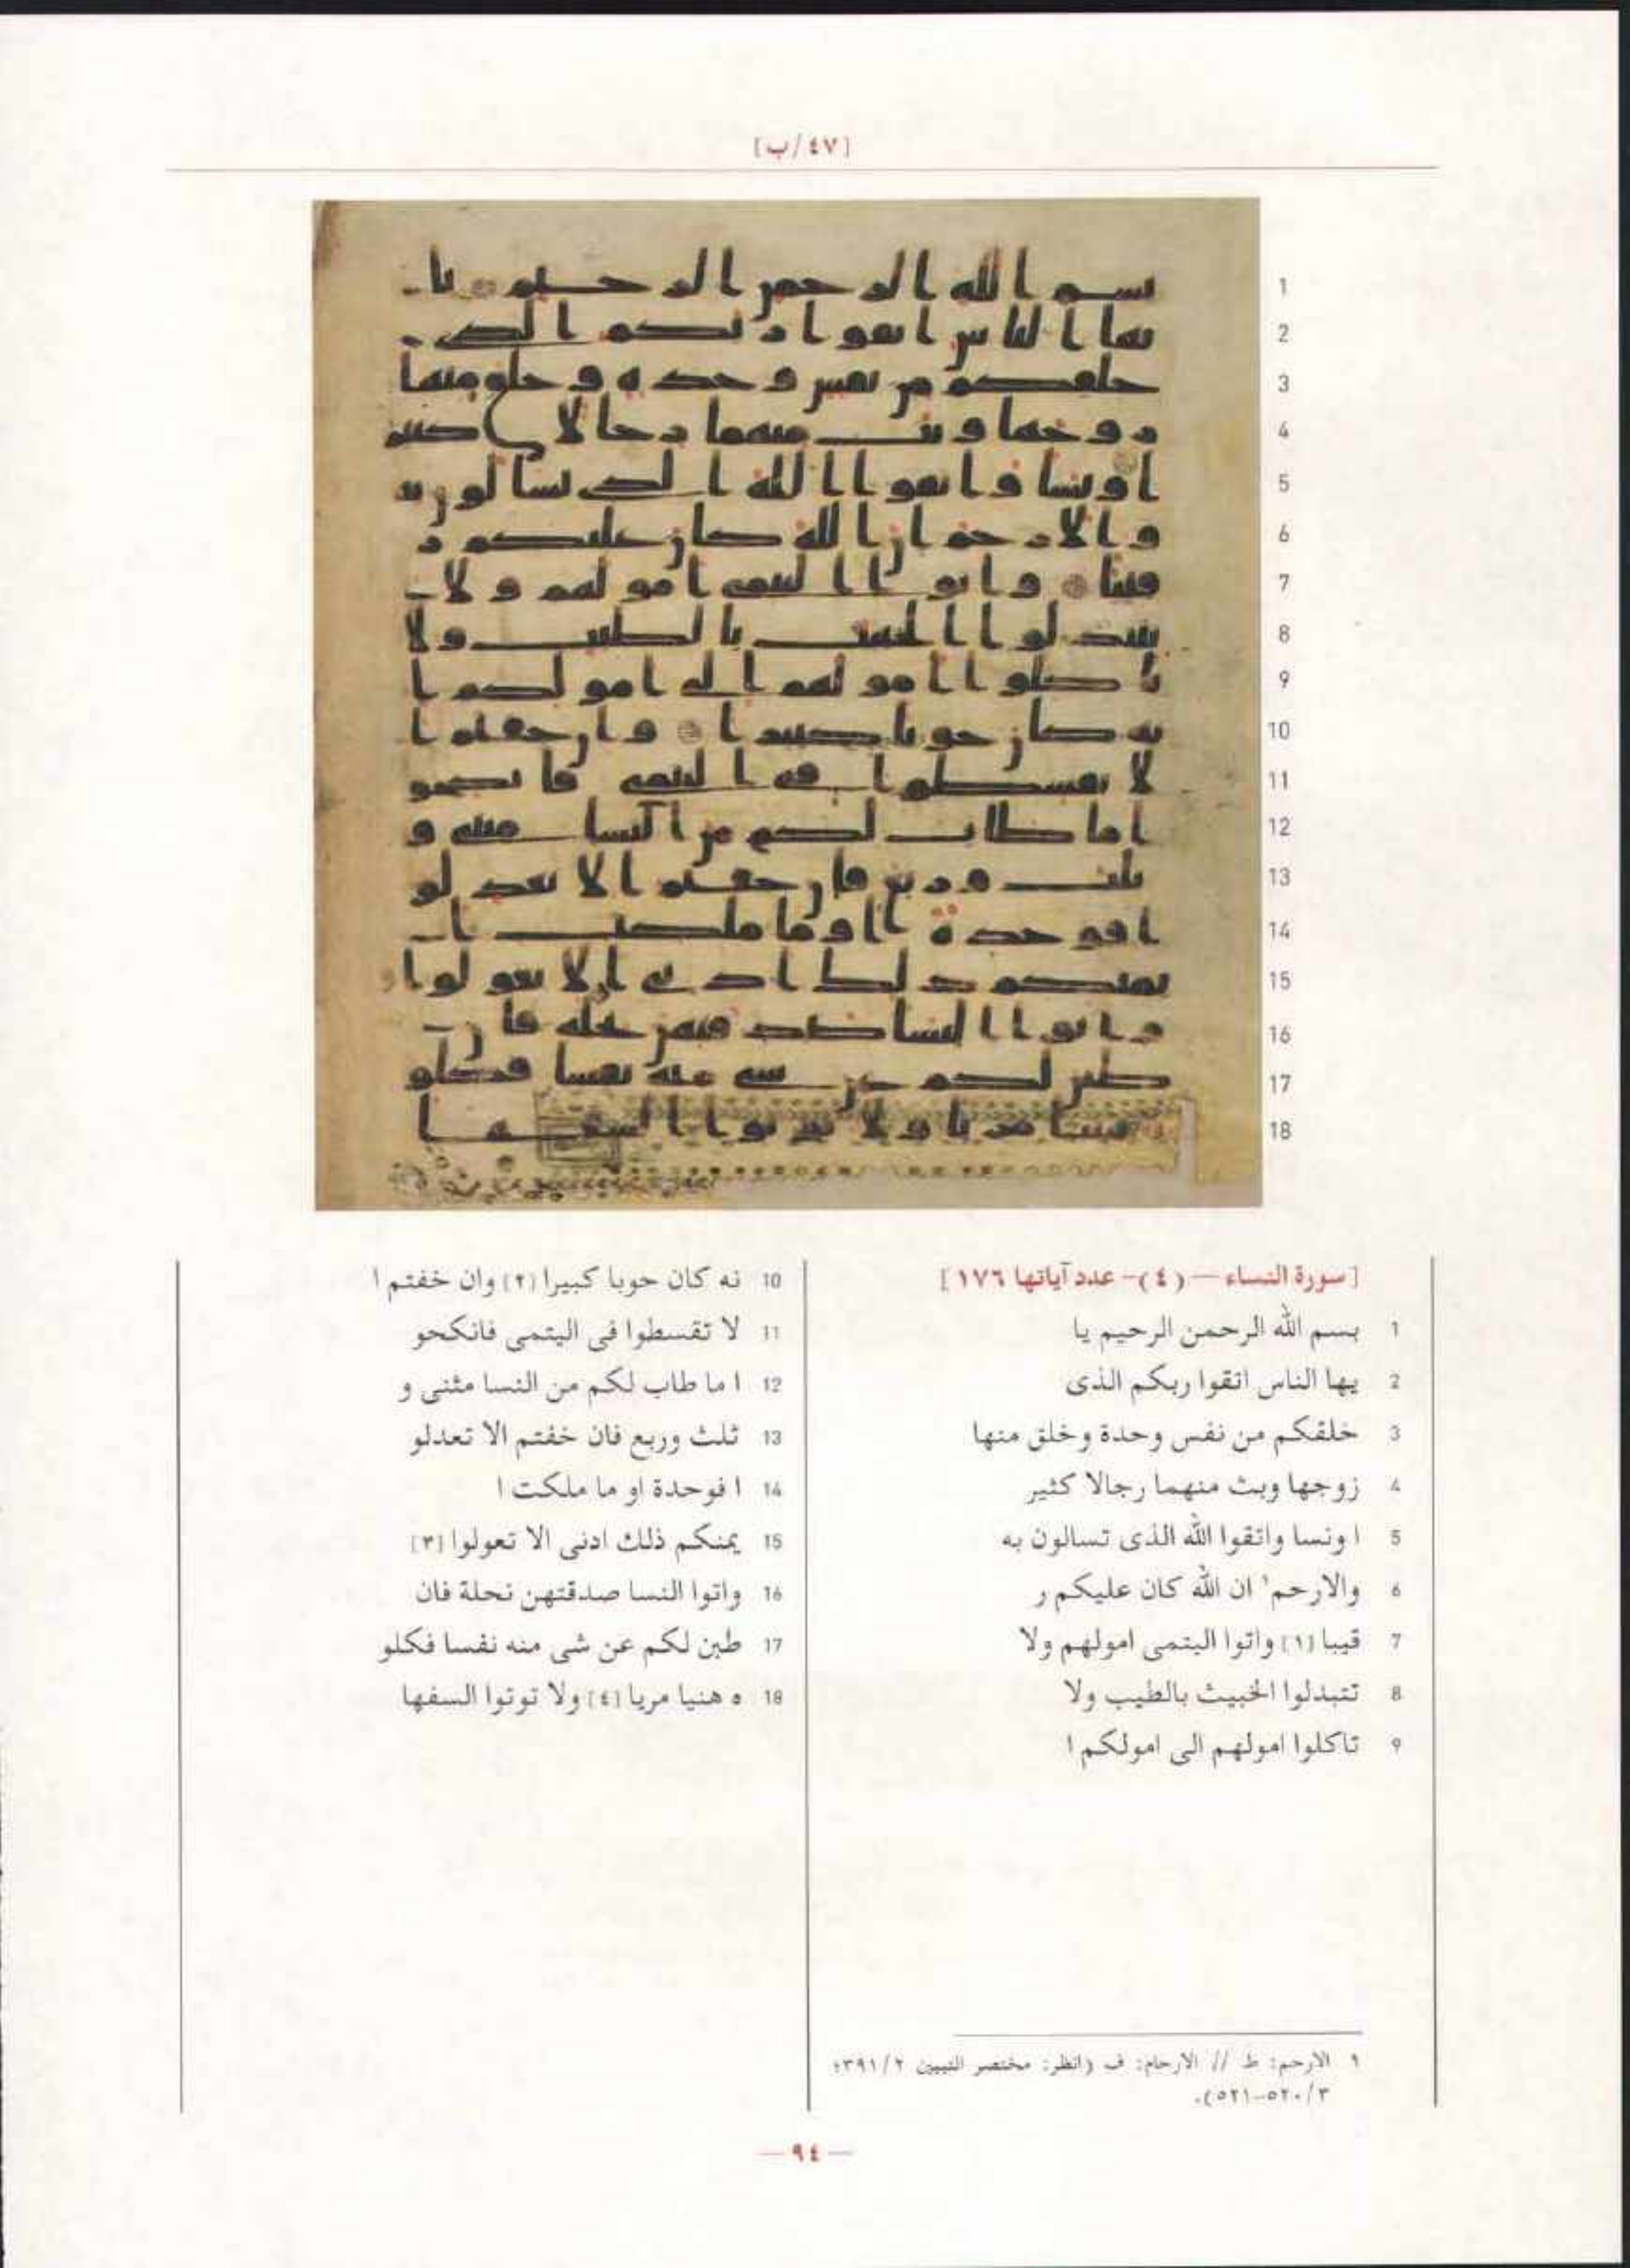 [٤٧/ب]
1
2
3
4
5
6
7
8
9
10
11
12
13
14
15
16
17
18
[سورة النساء — (٤) – عدد آياتها ١٧٦]
1 بسم الله الرحمن الرحيم يا
2 يها الناس اتقوا ربكم الذى
3 خلقكم من نفس وحدة وخلق منها
4 زوجها وبث منهما رجالا كثير
5 ا ونسا واتقوا الله الذى تسالون به
6 والارحم١ ان الله كان عليكم ر
7 قيبا [١] واتوا اليتمى امولهم ولا
8 تتبدلوا الخبيث بالطيب ولا
9 تاكلوا امولهم الى امولكم ا
10 نه كان حوبا كبيرا [٢] وان خفتم ا
11 لا تقسطوا فى اليتمى فانكحو
12 ا ما طاب لكم من النسا مثنى و
13 ثلث وربع فان خفتم الا تعدلو
14 ا فوحدة او ما ملكت ا
15 يمنكم ذلك ادنى الا تعولوا [٣]
16 واتوا النسا صدقتهن نحلة فان
17 طبن لكم عن شى منه نفسا فكلو
18 ه هنيا مريا [٤] ولا توتوا السفها
١ الارحم: ط // الارحام: ف (انظر: مختصر التبيين ٣٩١/٢؛
٥٢٠/٣–٥٢١).
— ٩٤ —